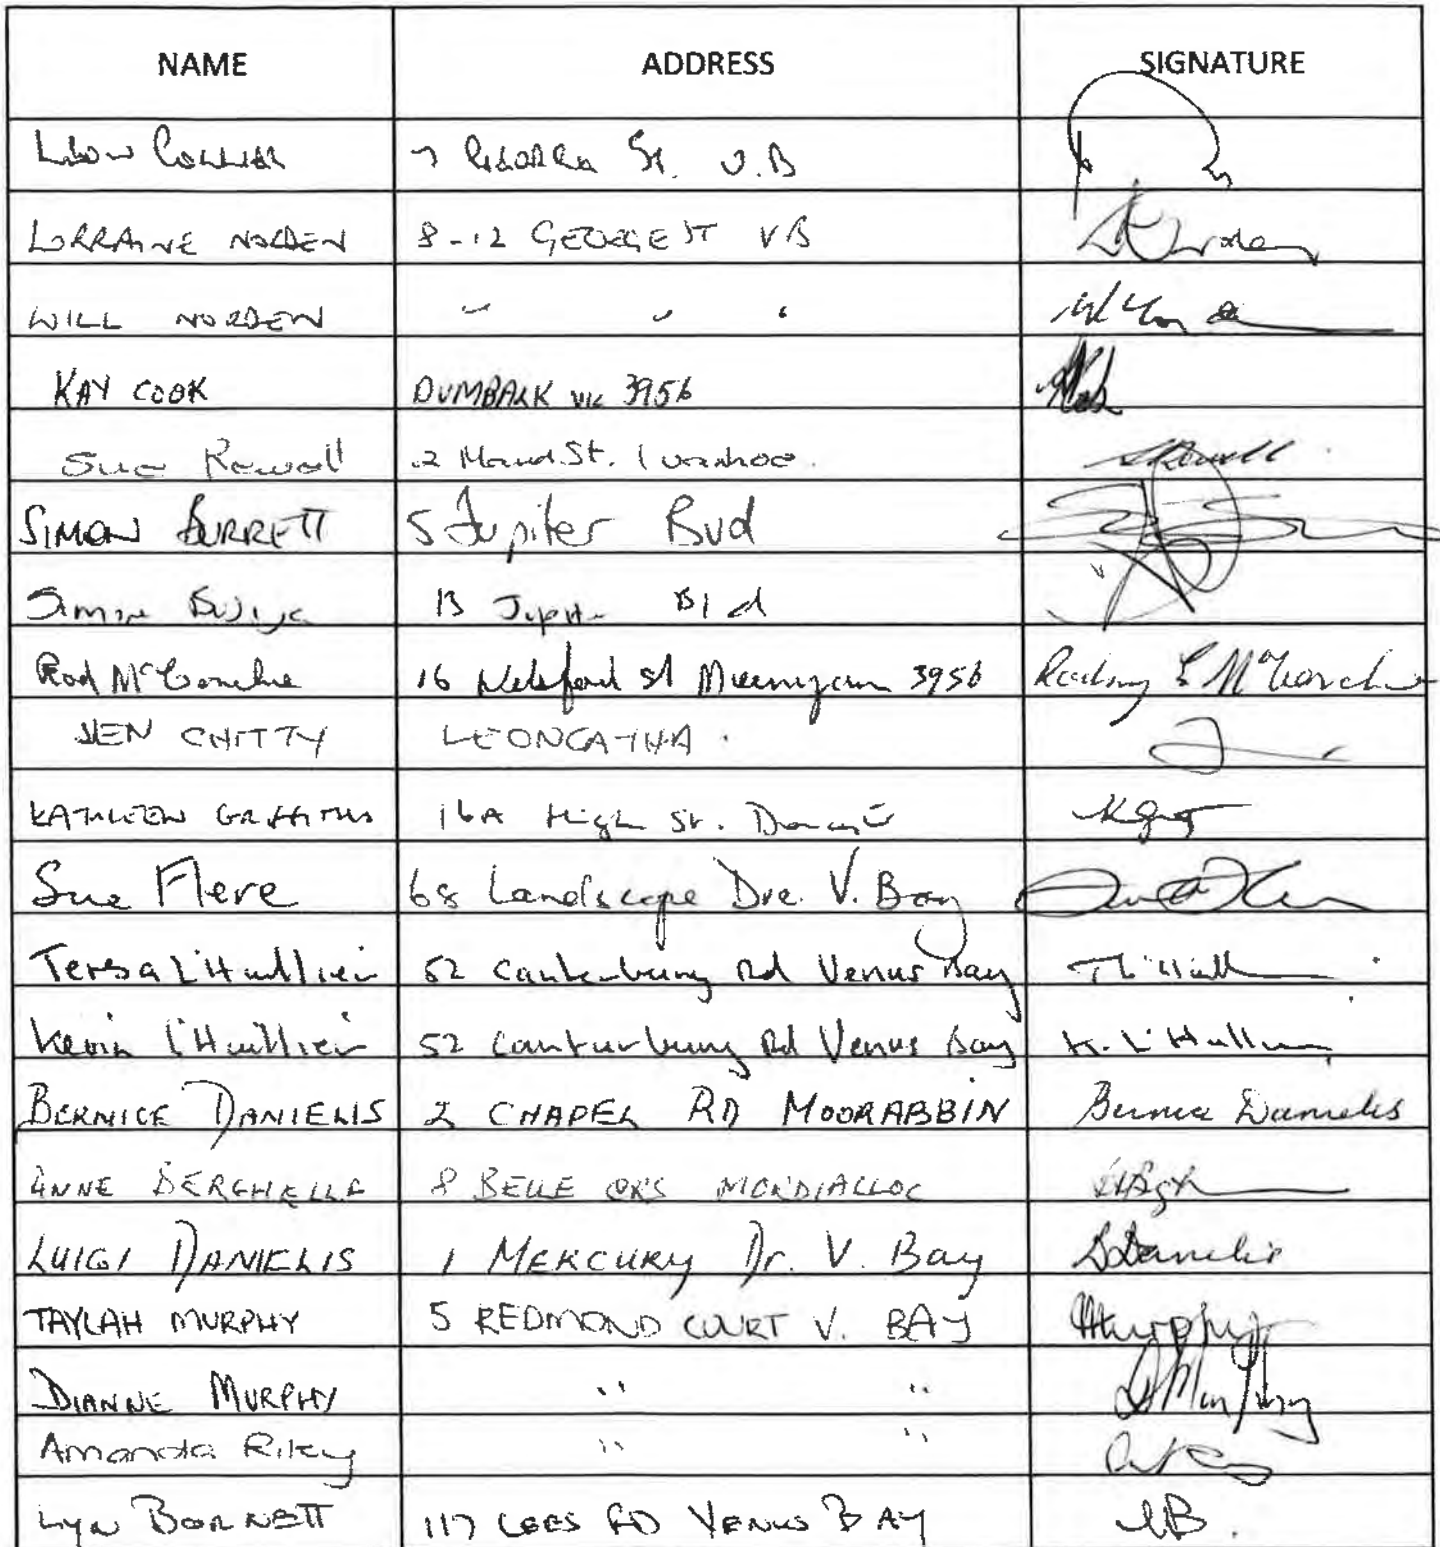 NAME ADDRESS SIGNATURE
LEON COLLIER 7 St. V.B
LORRAINE NORDEN 8-12 GEORGE ST VB
WILL NORDEN " " "
KAY COOK DUMBALK VIC 3956
Sue Rewell 2 Maud St. Ivanhoe.
SIMON BURRETT 5 Jupiter Bvd
Simon 13 Jupiter Bld
Rod McConchie 16 St Meeniyan 3956
JEN CHITTY LEONGATHA.
KATHLEEN GRIFFITHS 16A High St.
Sue Flere 68 Landscape Dve. V. Bay
Teresa L'Huillier 52 Canterbury Rd Venus Bay
Kevin L'Huillier 52 Canturbury Rd Venus Bay K. L'Huillier
BERNICE DANIELIS 2 CHAPEL RD MOORABBIN Bernice Danielis
ANNE BERGHELLA 8 BELLE CRS MORDIALLOC
LUIGI DANIELIS 1 MERCURY Dr. V. Bay
TAYLAH MURPHY 5 REDMOND COURT V. BAY
DIANNE MURPHY " " D Murphy
Amanda Riley " "
Lyn BORNETT 117 LEES RD VENUS BAY LB.